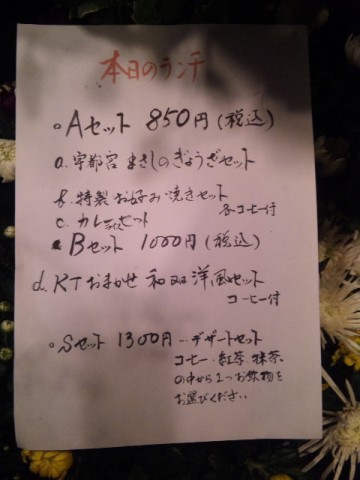 本日のランチ
○Aセット 850円(税込)
a. 宇都宮 まさしのぎょうざセット
b. 特製 お好み焼きセット
各コーヒー付
c. カレーライスセット
Bセット 1000円(税込)
d. KTおまかせ 和 洋風セット
コーヒー付
○Sセット 1300円…デザートセット
コーヒー・紅茶 抹茶
の中から1つお飲物を
お選びください